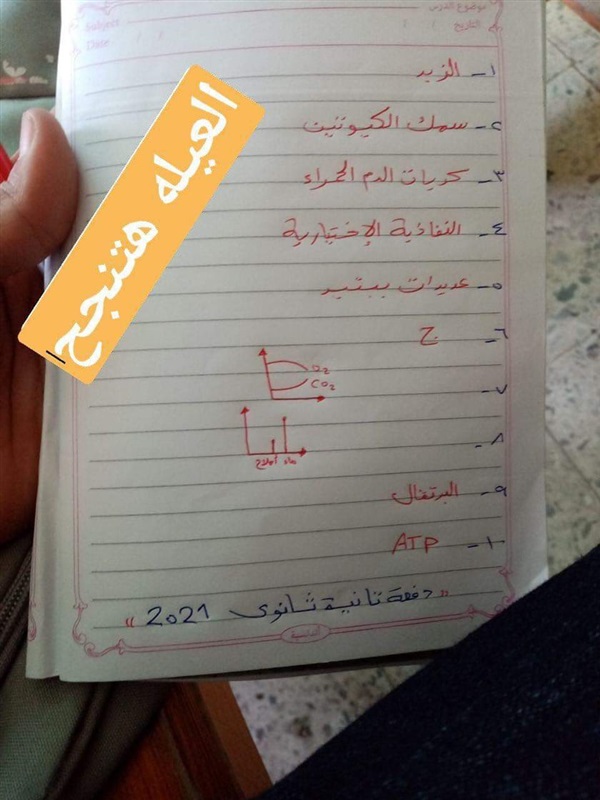 موضوع الدرس
Subject:
التاريخ / /
Date / /
العيله هتنجح
١- الزبد
٢- سمك الكيوتين
٣- كريات الدم الحمراء
٤- النفاذية الإختيارية
٥- عديدات ببتيد
٦- ج
O2
CO2
٧-
٨-
ماء أملاح
٩- البرتقال
١٠- ATP
"دفعة تانية ثانوى 2021"